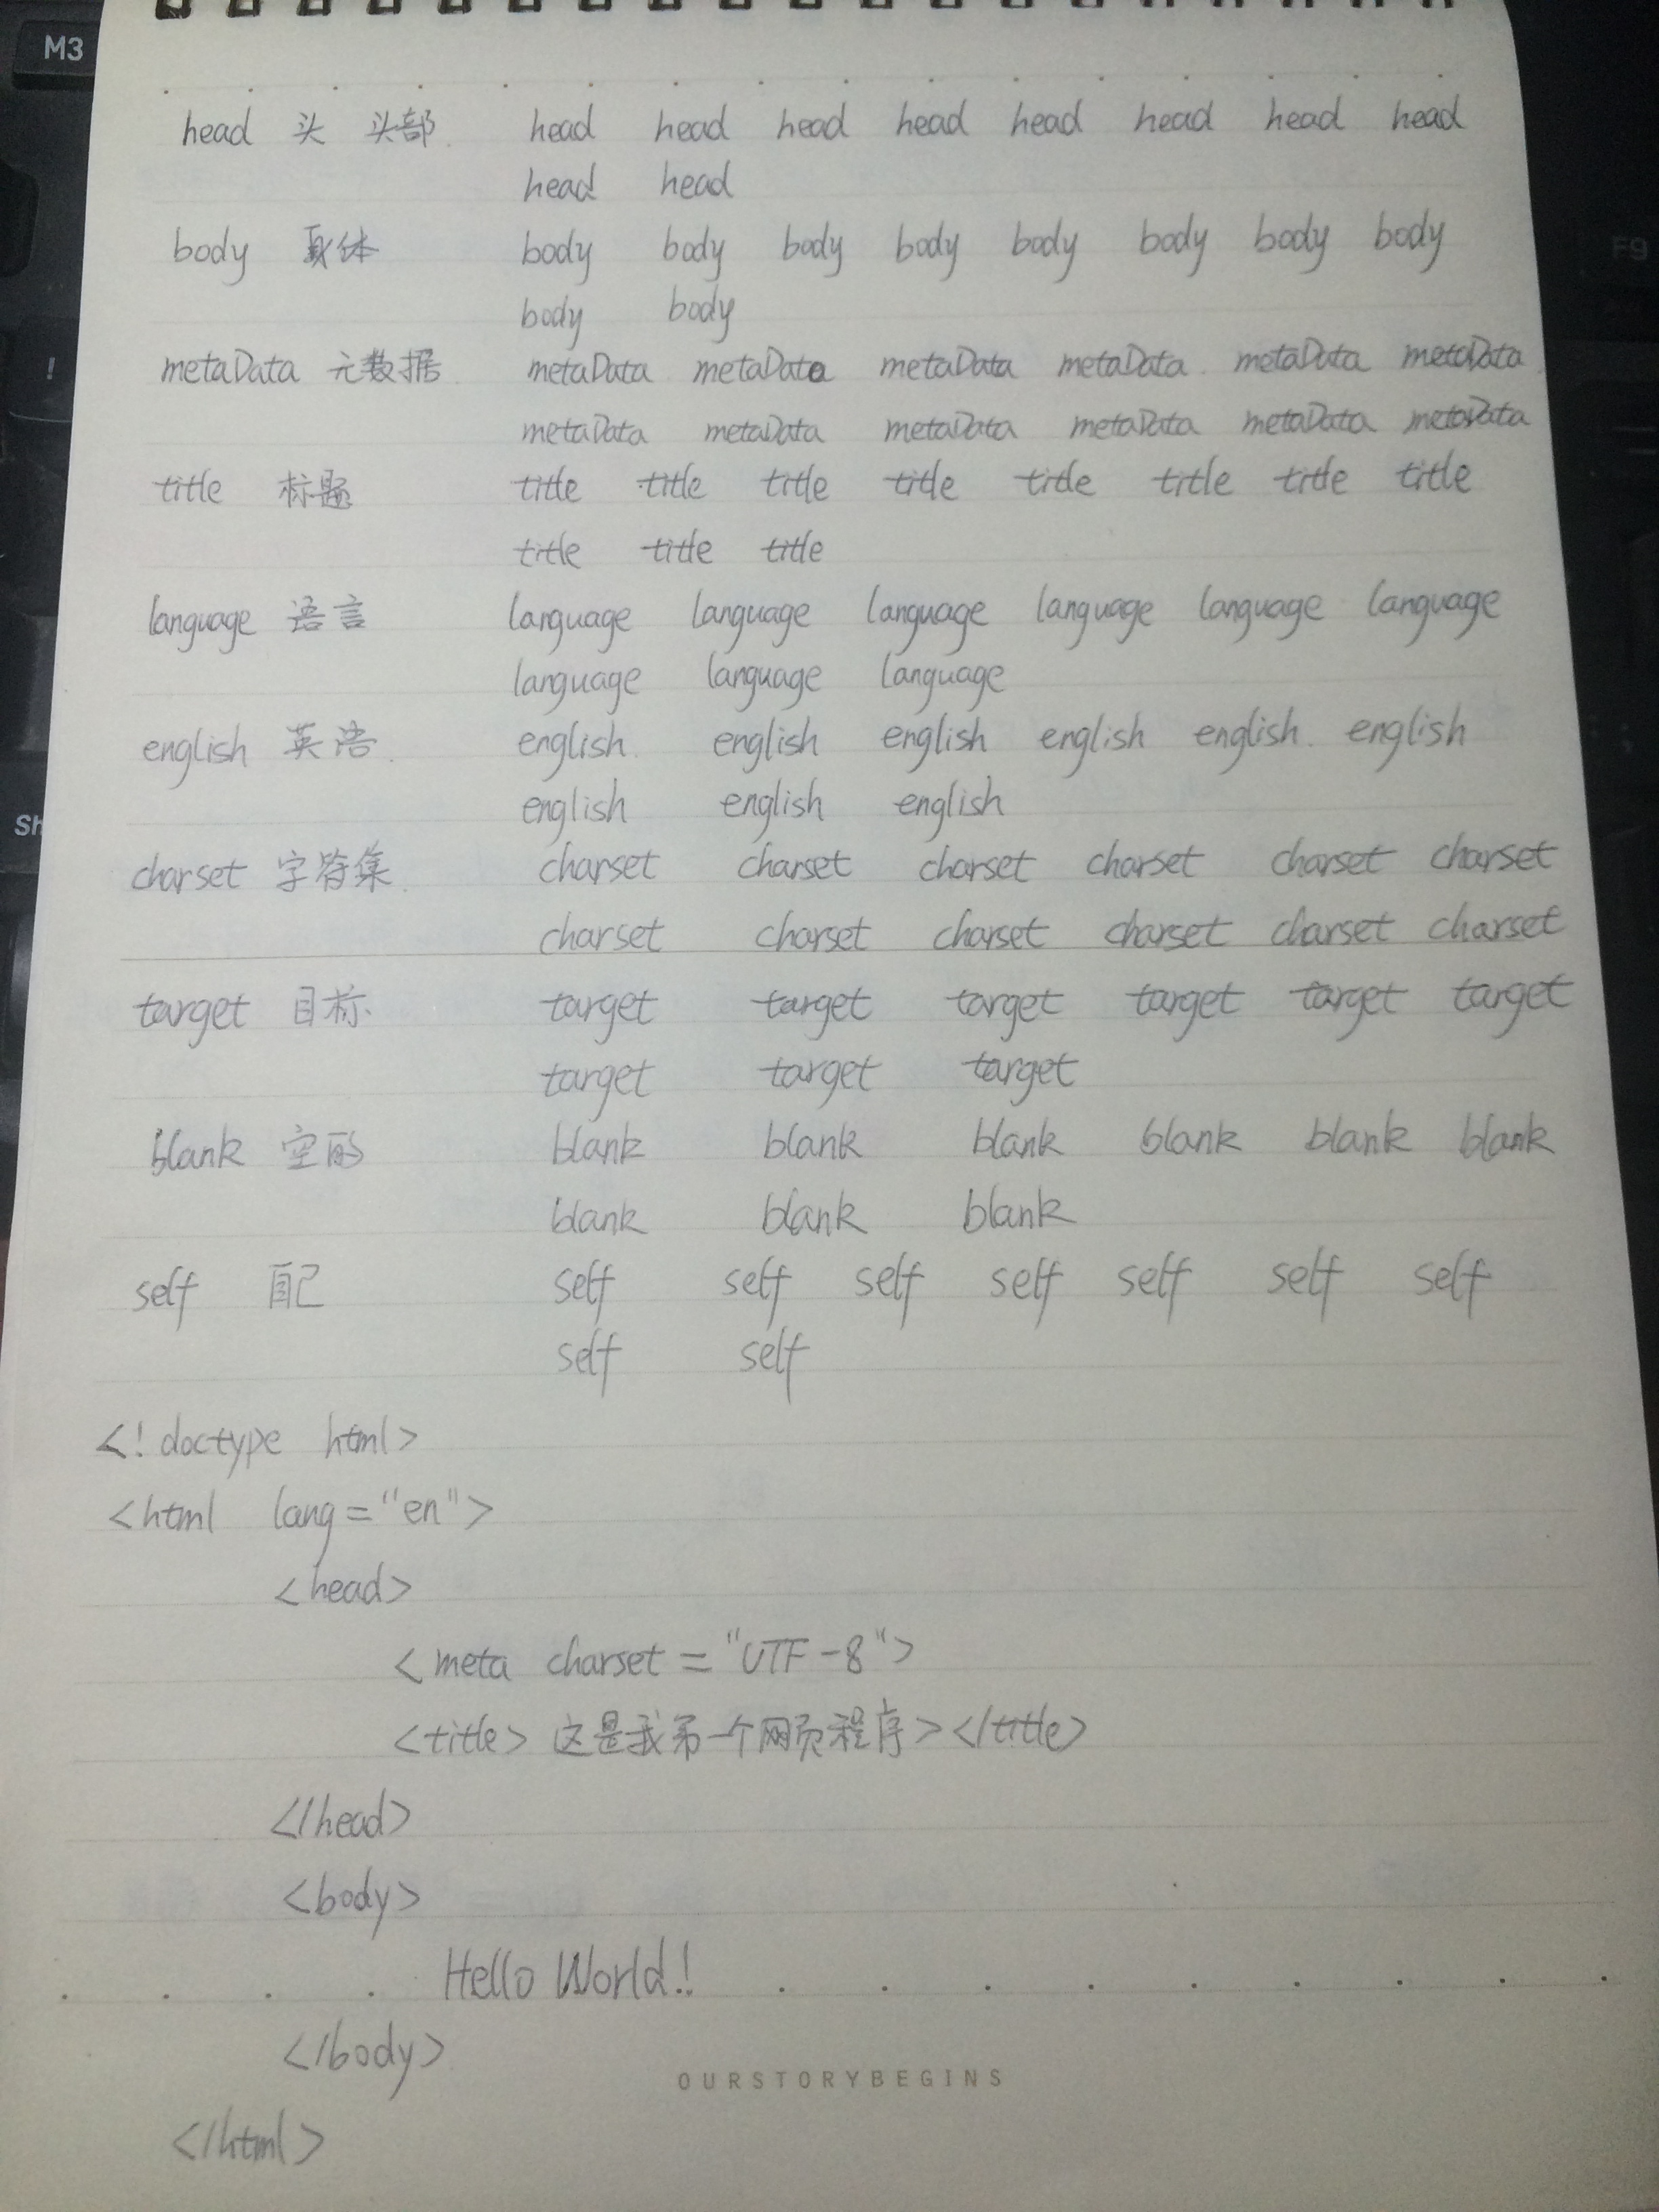 M3
head 头 头部. head head head head head head head head
head head
body 身体 body body body body body body body body
body body
F9
metaData 元数据 metaData metaData metaData metaData. metaData metaData
!
metaData metaData metaData metaData metaData metaData
title 标题 title title title title title title title title
title title title
language 语言 language language language language language language
language language language
english 英语. english english english english english. english
english english english
Sh
charset 字符集. charset charset charset charset charset charset
charset charset charset charset charset charset
target 目标 target target target target target target
target target target
blank 空的 blank blank blank blank blank blank
blank blank blank
self 自己 self self self self self self self
self self
<! doctype html>
<html lang="en">
<head>
<meta charset="UTF-8">
<title> 这是我第一个网页程序></title>
</head>
<body>
Hello World!
</body>
OURSTORYBEGINS
</html>